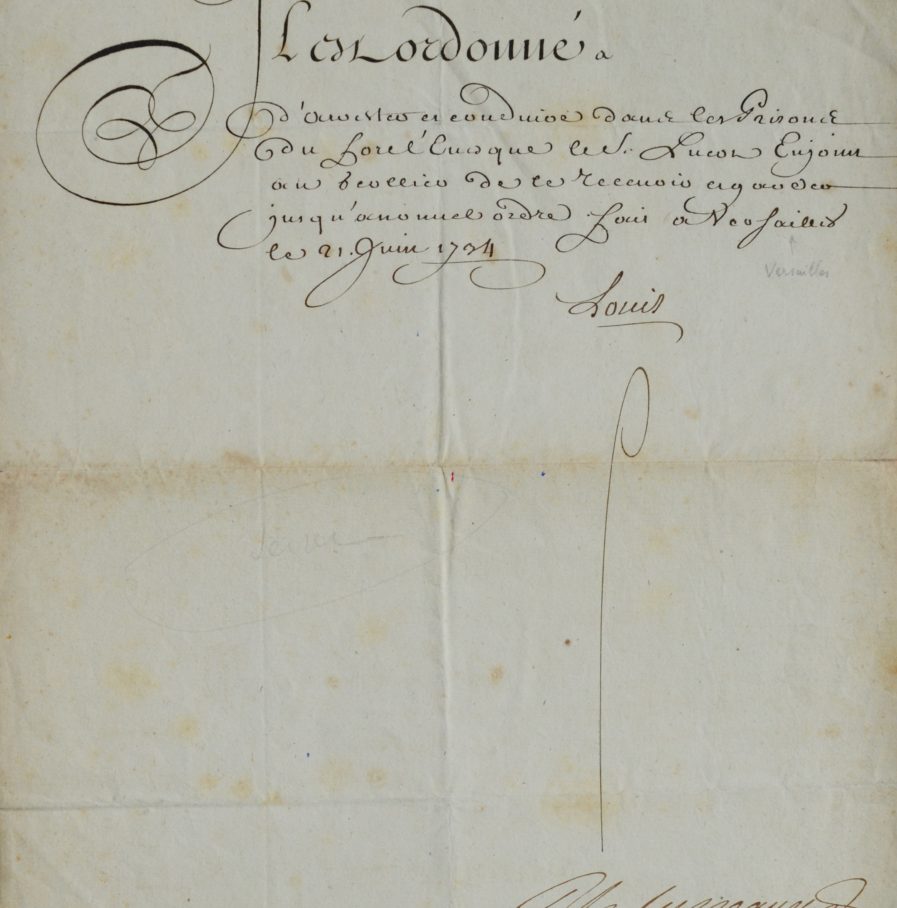 Il est ordonné a
d'arrester et conduire dans les Prisons
du fore l'Evesque le S.r Lucot Enjoint
au Geollier de le recevoir et garder
jusqu'a nouvel ordre fait a Versailles
Versailles
le 21. Juin 1734
Louis